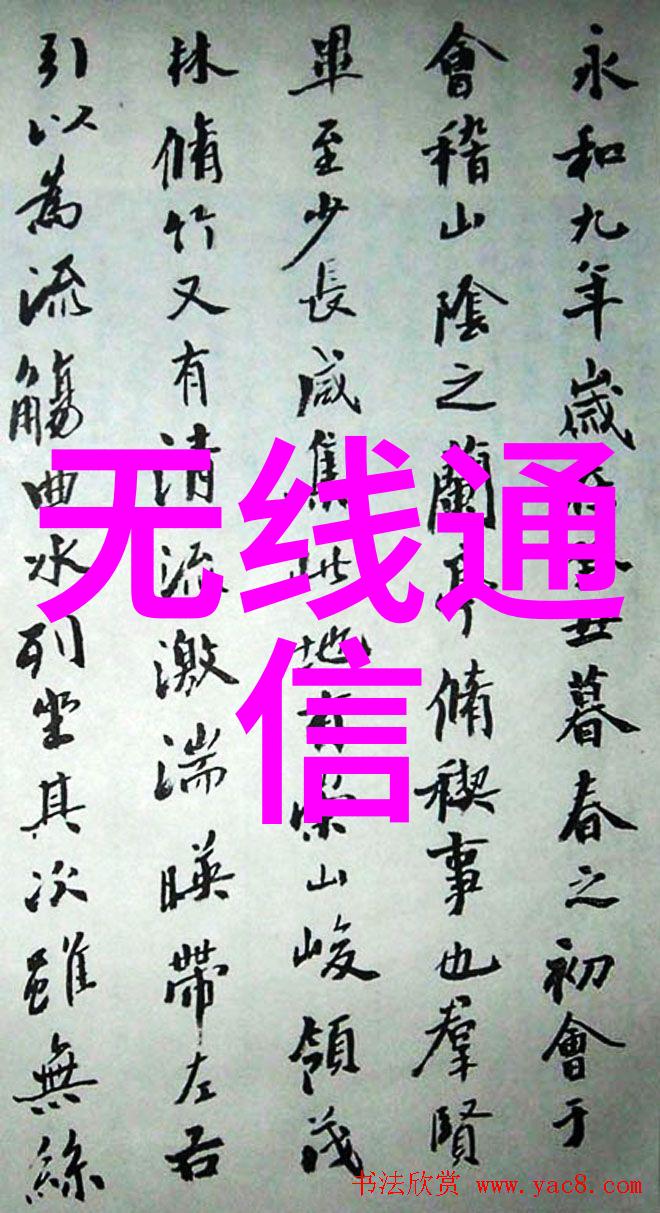 永和九年歲在癸丑暮春之初會于
會稽山陰之蘭亭脩稧事也羣賢
畢至少長咸集此地有崇山峻領茂
林脩竹又有清流激湍暎帶左右
引以為流觴曲水列坐其次雖無絲
无线通
信
书法欣赏 www.yac8.com